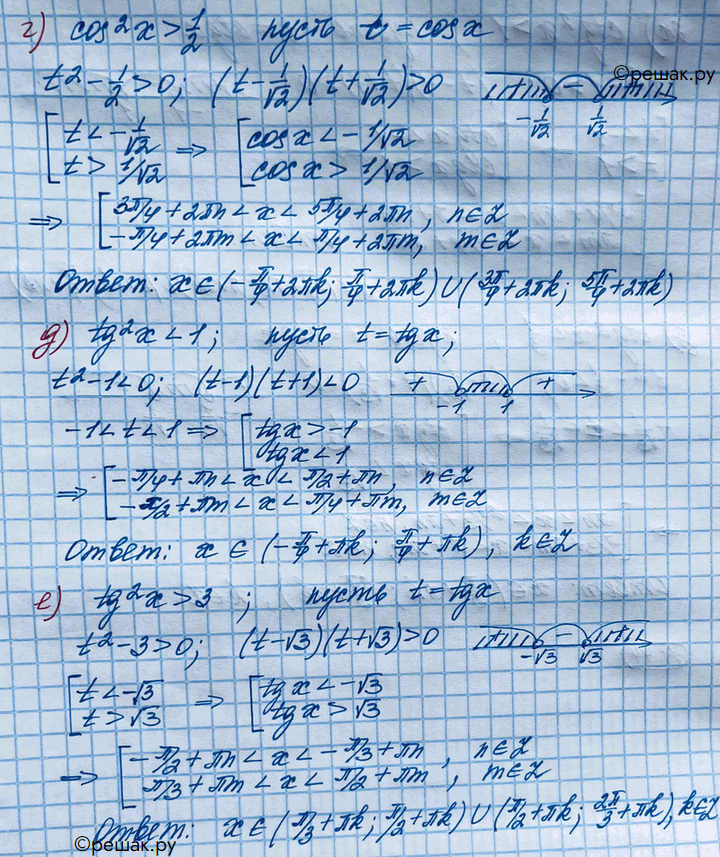 г) cos²x > 1/2 пусть t = cosx
©решак.ру
t² - 1/2 > 0; (t - 1/√2)(t + 1/√2) > 0 + - +
-1/√2 1/√2
[ t < -1/√2 ⇒ [ cosx < -1/√2
t > 1/√2 cosx > 1/√2
⇒ [ 3π/4 + 2πn < x < 5π/4 + 2πn, n∈Z
-π/4 + 2πm < x < π/4 + 2πm, m∈Z
Ответ: x∈(-π/4 + 2πk; π/4 + 2πk) ∪ (3π/4 + 2πk; 5π/4 + 2πk)
д) tg²x < 1; пусть t = tgx;
t² - 1 < 0; (t-1)(t+1) < 0 + +
-1 1
-1 < t < 1 ⇒ [ tgx > -1
tgx < 1
⇒ [ -π/4 + πn < x < π/2 + πn, n∈Z
-π/2 + πm < x < π/4 + πm, m∈Z
Ответ: x ∈ (-π/4 + πk; π/4 + πk), k∈Z
е) tg²x > 3 ; пусть t = tgx
t² - 3 > 0; (t-√3)(t+√3) > 0 + - +
-√3 √3
[ t < -√3 ⇒ [ tgx < -√3
t > √3 tgx > √3
⇒ [ -π/2 + πn < x < -π/3 + πn, n∈Z
π/3 + πm < x < π/2 + πm, m∈Z
Ответ: x∈(π/3 + πk; π/2 + πk) ∪ (π/2 + πk; 2π/3 + πk), k∈Z
©решак.ру